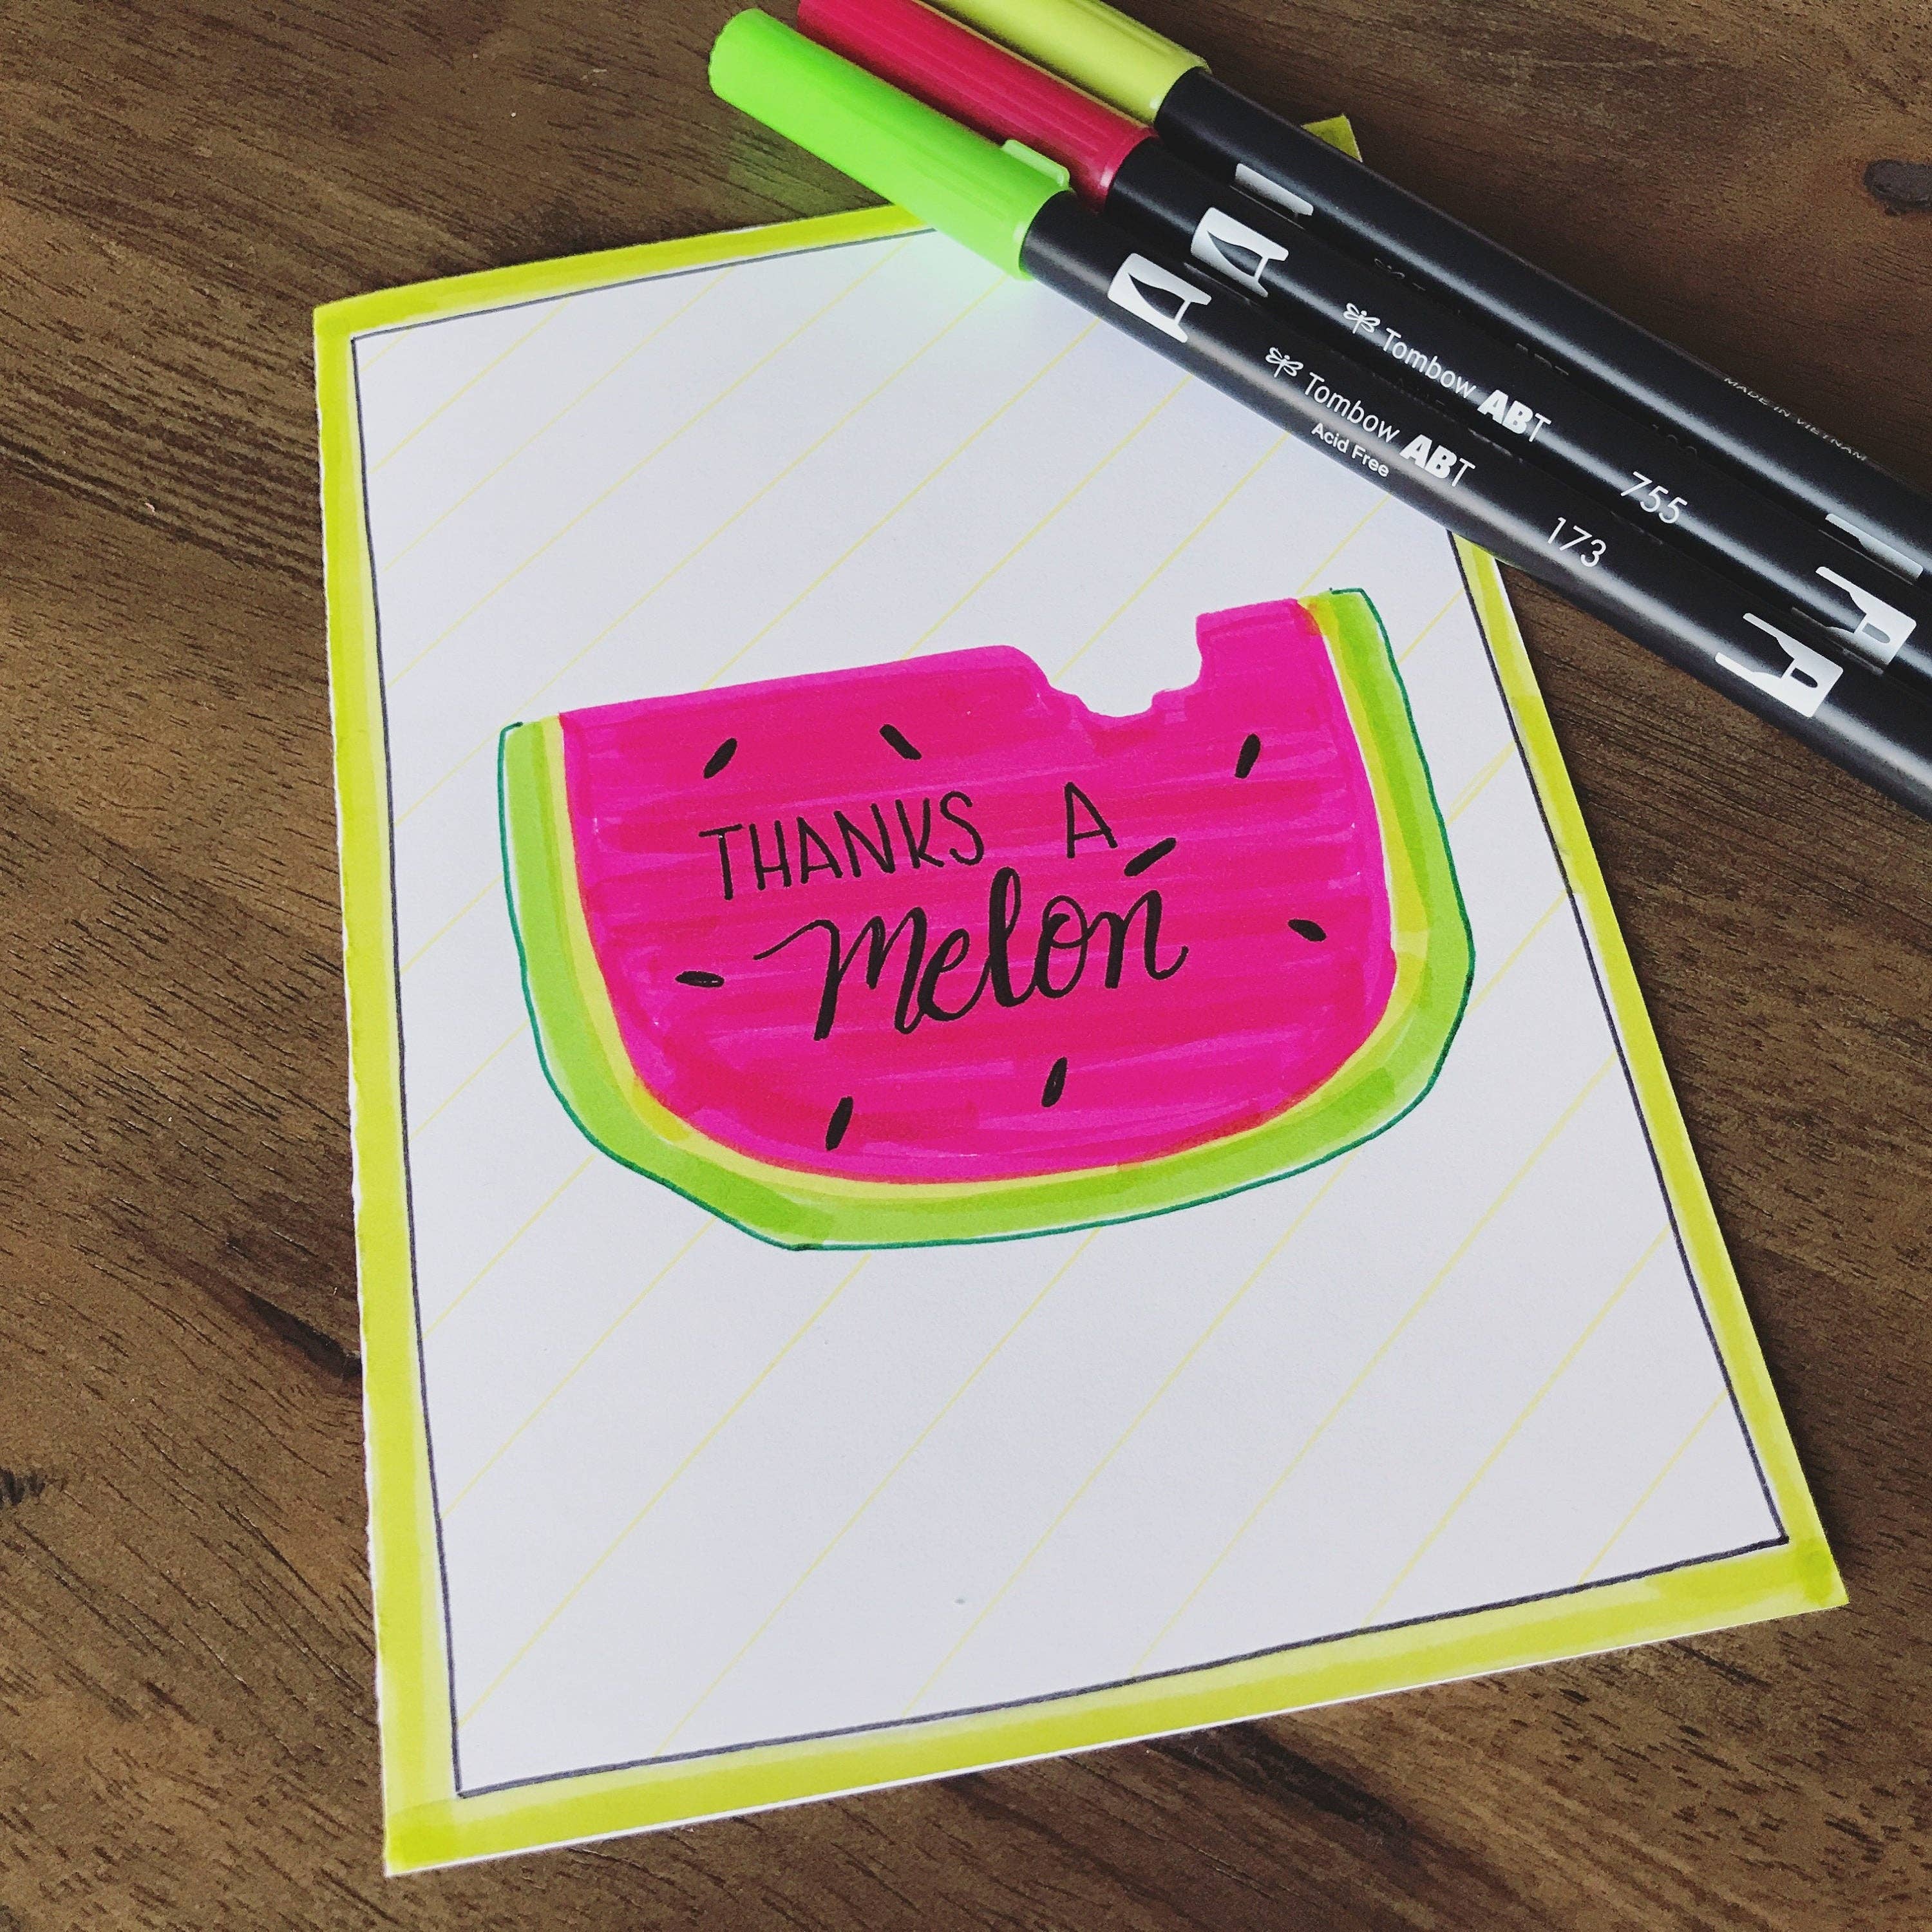 THANKS A
Melon
Tombow ABT
755
Tombow ABT
Acid Free
173
MADE IN VIETNAM